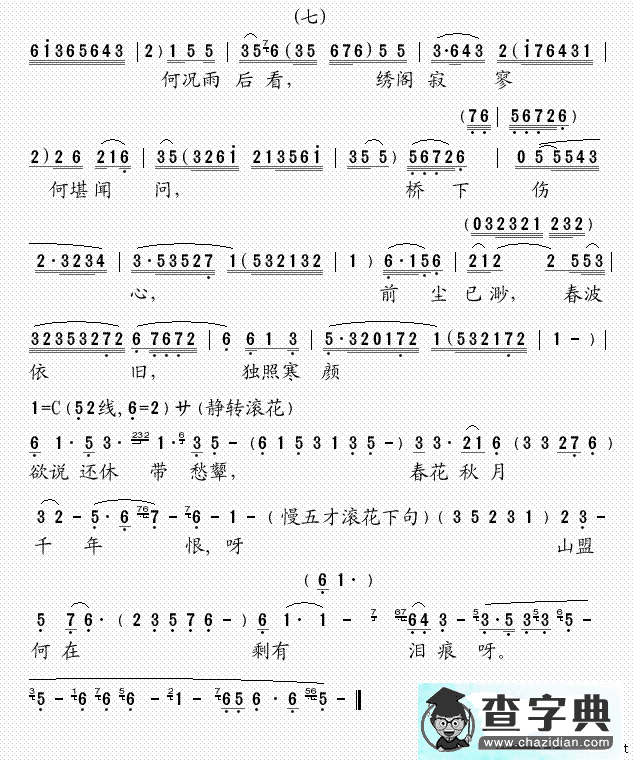 (七)
6i365643 | 2) 1 5 5 | 3576(35 676) 5 5 | 3·643 2(i76431 |
何况雨后看, 绣阁寂寥
(76 | 56726)
2) 2 6 216 | 35(3261 2i3561 | 35 5) 56726 | 0 5 5543
何堪闻问, 桥下伤
(032321 232)
2·3234 | 3·53527 1(532132 | 1) 6·156 | 212 2 553 |
心, 前尘已渺, 春波
32353272 | 6 7672 | 6 6 1 3 | 5·320172 1(532172 | 1 -) |
依旧, 独照寒颜
1=C(52线, 6=2) サ (静转滚花)
6 1· 5 3· 232 1· 6 3 5 - (6 1 5 3 1 3 5 -) 3 3· 21 6 (3 3 27 6)
欲说还休带愁颦, 春花秋月
3 2 - 5· 6 76 7 - 7 6 - 1 - (慢五才滚花下句) (3 5 2 3 1) 2 3 -
千年恨,呀 山盟
(6 1·)
5 7 6· (2 3 5 7 6 -) 6 1· 1 - 7 67 64 3 - 5 3·5 5 3 5 3 6 5 -
何在 剩有 泪痕呀。
3 5 - 1 6 7 6 5 6 - 2 1 - 7 65 6 · 6 56 5 - ‖
查字典
www.chazidian.com
t